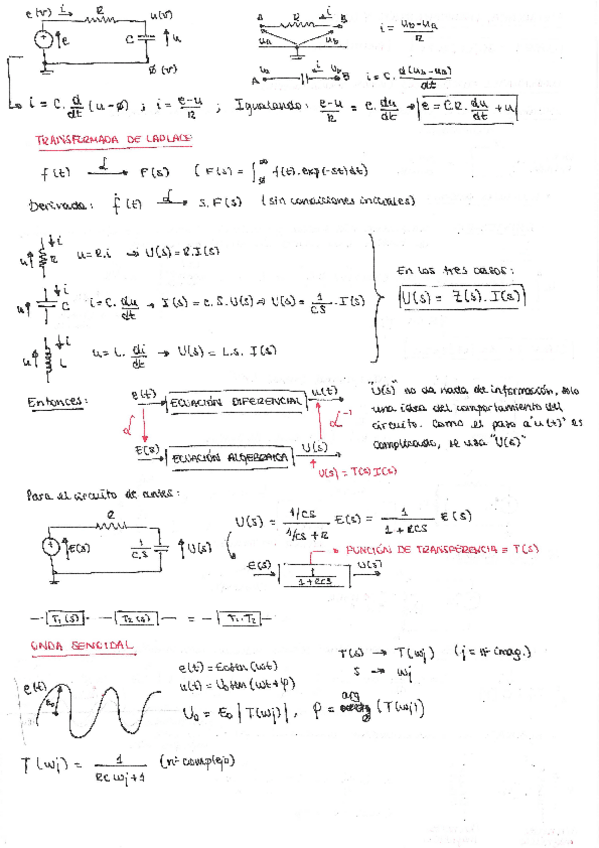 e(v) i R u(v)
e C u
ø(v)
A R i B
ua ub
i = (ub-ua)/R
ua i ub
A B i = C. d(ub-ua)/dt
i = C. d/dt (u-ø) ; i = (e-u)/R ; Igualando: (e-u)/R = C. du/dt → e = C.R. du/dt + u
TRANSFORMADA DE LAPLACE
f(t) → F(s) ( F(s) = ∫ f(t).exp(-st)dt)
Derivada: f(t) → S.F(s) (sin condiciones iniciales)
u i R u = R.i → U(s) = R.I(s)
u i C i = C. du/dt → I(s) = C.S.U(s) ⇒ U(s) = 1/CS . I(s)
u i L u = L. di/dt → U(s) = L.s. I(s)
En los tres casos:
U(s) = Z(s).I(s)
Entonces: e(t) → ECUACIÓN DIFERENCIAL u(t) →
L L⁻¹
E(s) → ECUACIÓN ALGEBRAICA U(s) →
U(s) = T(s) I(s)
"U(s)" no da nada de información, solo
una idea del comportamiento del
circuito. Como el paso a "u(t)" es
complicado, se usa "U(s)"
Para el circuito de antes:
R
E(s) 1/C.S U(s)
U(s) = (1/CS)/(1/CS + R) E(s) = 1/(1+RCS) E(s)
FUNCIÓN DE TRANSFERENCIA ≡ T(s)
E(s) → 1/(1+RCS) U(s) →
— T1(s) — — T2(s) — = — T1.T2 —
ONDA SENOIDAL
e(t) E0
e(t) = E0 sen (wt)
u(t) = U0 sen (wt+φ)
U0 = E0 |T(wj)| , φ = arg (T(wj))
T(s) → T(wj) (j = nº imag.)
s → wj
T(wj) = 1/(RCwj+1) (nº complejo)